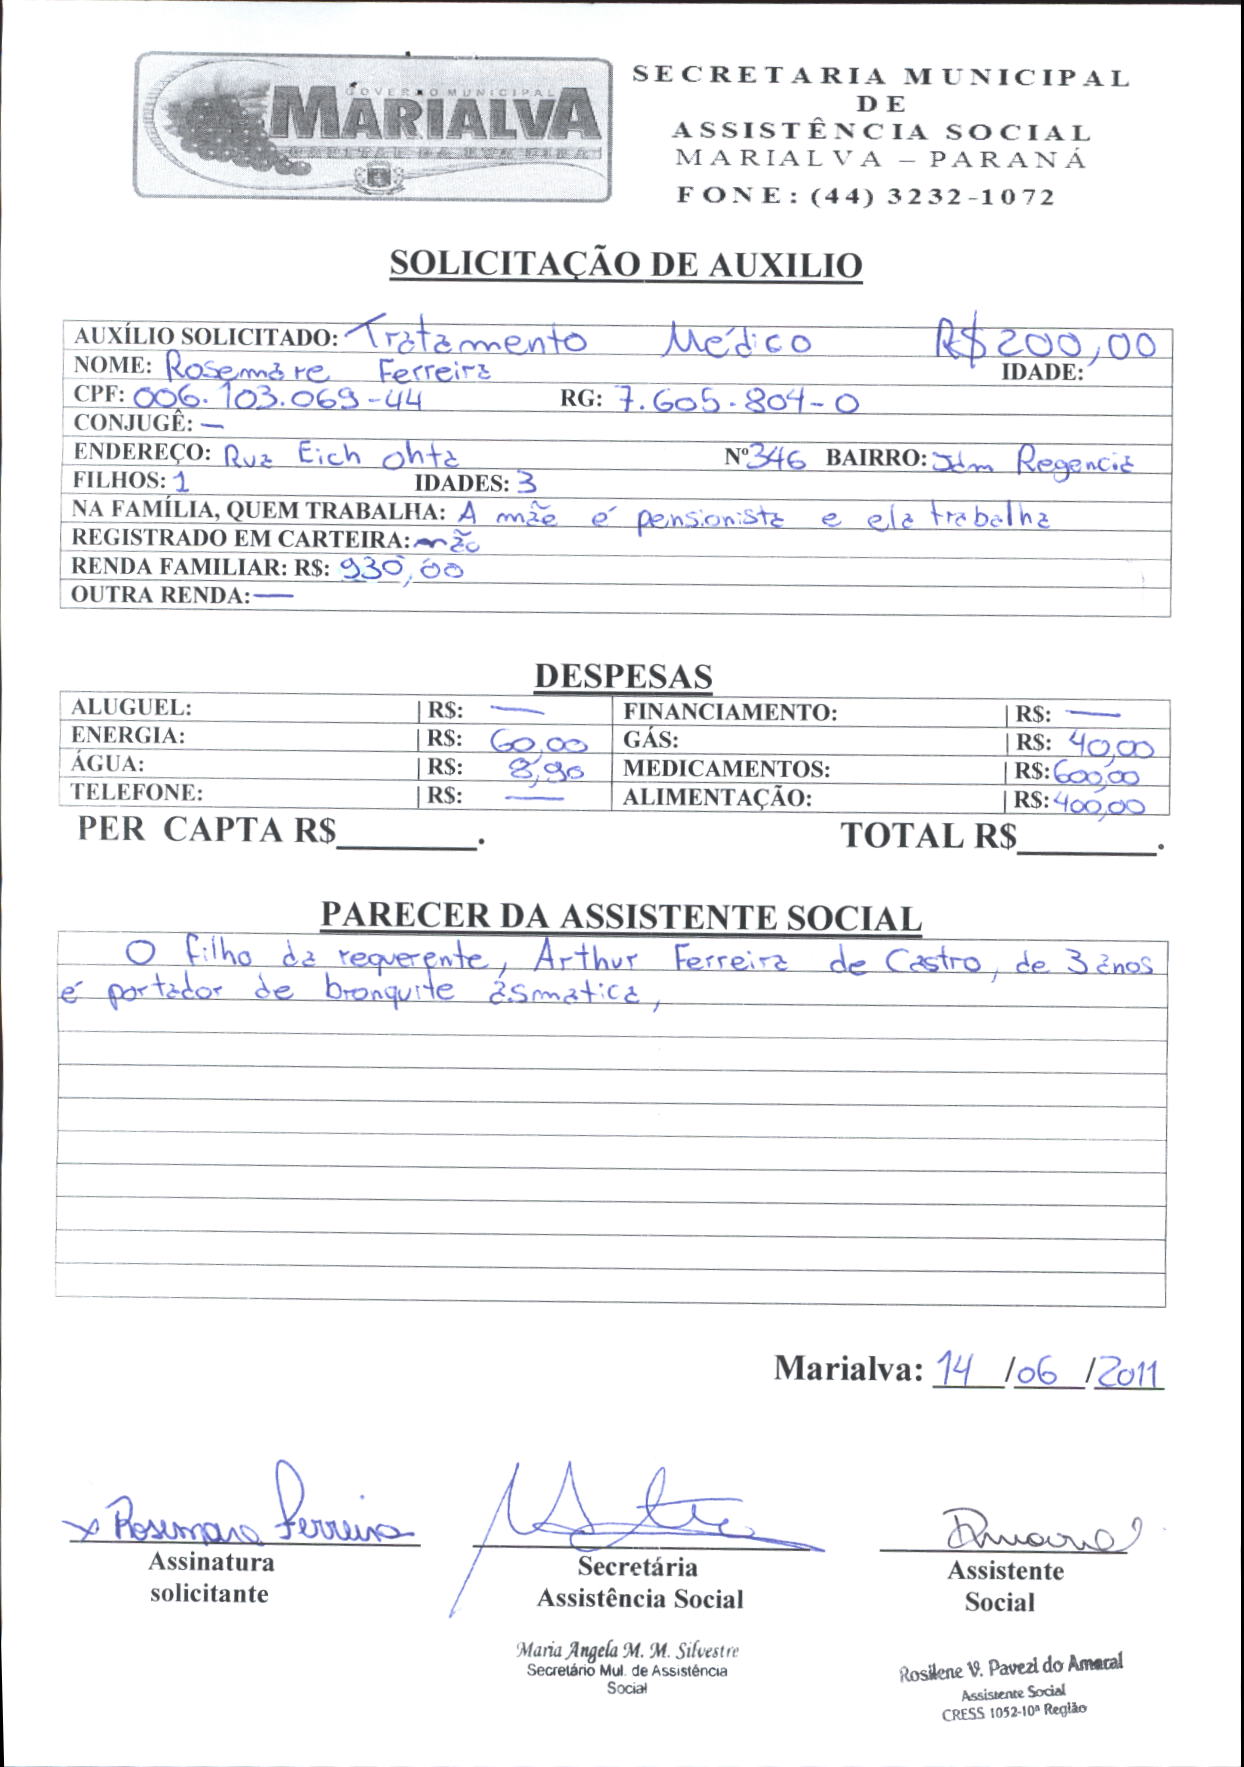 GOVERNO MUNICIPAL
MARIALVA
CAPITAL DA UVA FINA
SECRETARIA MUNICIPAL
DE
ASSISTÊNCIA SOCIAL
MARIALVA – PARANÁ
FONE: (44) 3232-1072
SOLICITAÇÃO DE AUXILIO
AUXÍLIO SOLICITADO: Tratamento Médico R$ 200,00
NOME: Rosemare Ferreira IDADE:
CPF: 006.103.069-44 RG: 7.605.804-0
CONJUGÊ: —
ENDEREÇO: Rua Eich Ohta Nº 346 BAIRRO: Jdm Regencia
FILHOS: 1 IDADES: 3
NA FAMÍLIA, QUEM TRABALHA: A mãe é pensionista e ela trabalha
REGISTRADO EM CARTEIRA: não
RENDA FAMILIAR: R$: 930,00
OUTRA RENDA: —
DESPESAS
ALUGUEL: | R$: — FINANCIAMENTO: | R$: —
ENERGIA: | R$: 60,00 GÁS: | R$: 40,00
ÁGUA: | R$: 8,90 MEDICAMENTOS: | R$: 600,00
TELEFONE: | R$: — ALIMENTAÇÃO: | R$: 400,00
PER CAPTA R$________. TOTAL R$________.
PARECER DA ASSISTENTE SOCIAL
O filho da requerente, Arthur Ferreira de Castro, de 3 anos
é portador de bronquite asmatica,
Marialva: 14 /06 /2011
x Rosemara Ferreira
Assinatura
solicitante
Secretária
Assistência Social
Assistente
Social
Maria Angela M. M. Silvestre
Secretário Mul. de Assistência
Social
Rosilene V. Pavezi do Amaral
Assistente Social
CRESS 1052-10ª Região